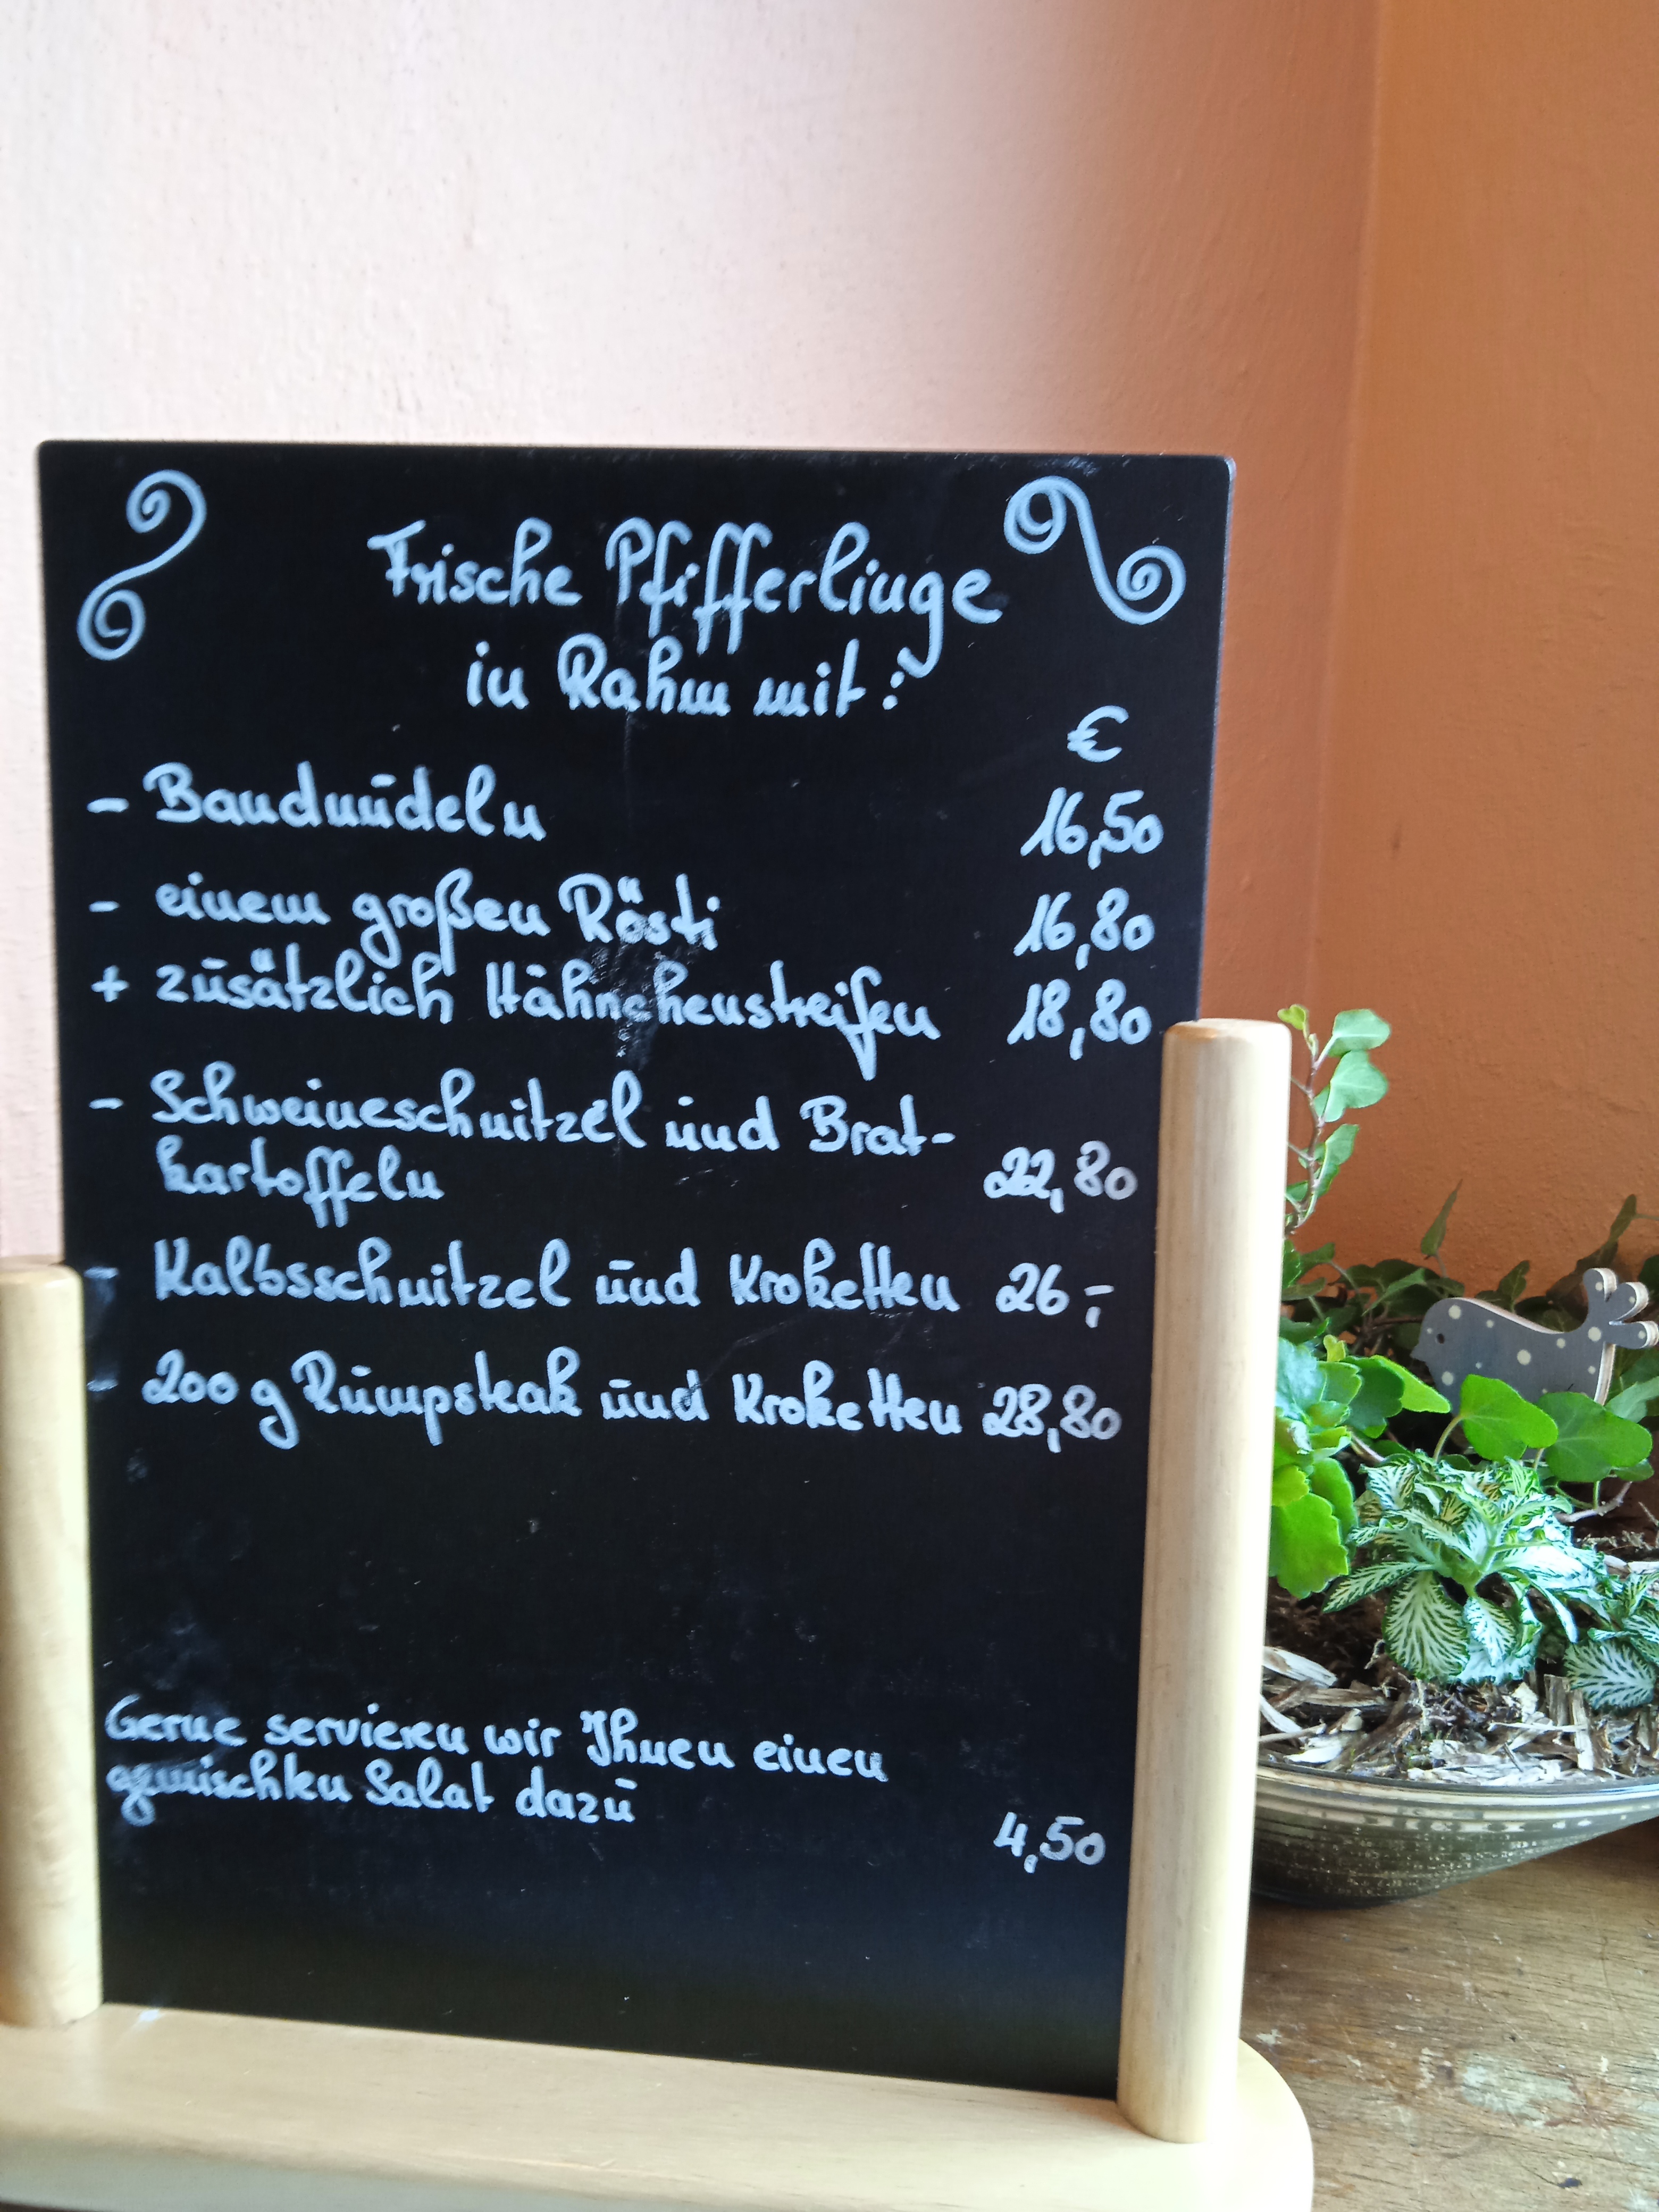 Frische Pfifferlinge
in Rahm mit:
€
- Bandnudeln 16,50
- einem großen Rösti 16,80
+ zusätzlich Hähnchenstreifen 18,80
- Schweineschnitzel und Brat-
kartoffeln 22,80
- Kalbsschnitzel und Kroketten 26,-
200 g Rumpsteak und Kroketten 28,80
Gerne servieren wir Ihnen einen
gemischten Salat dazu
4,50